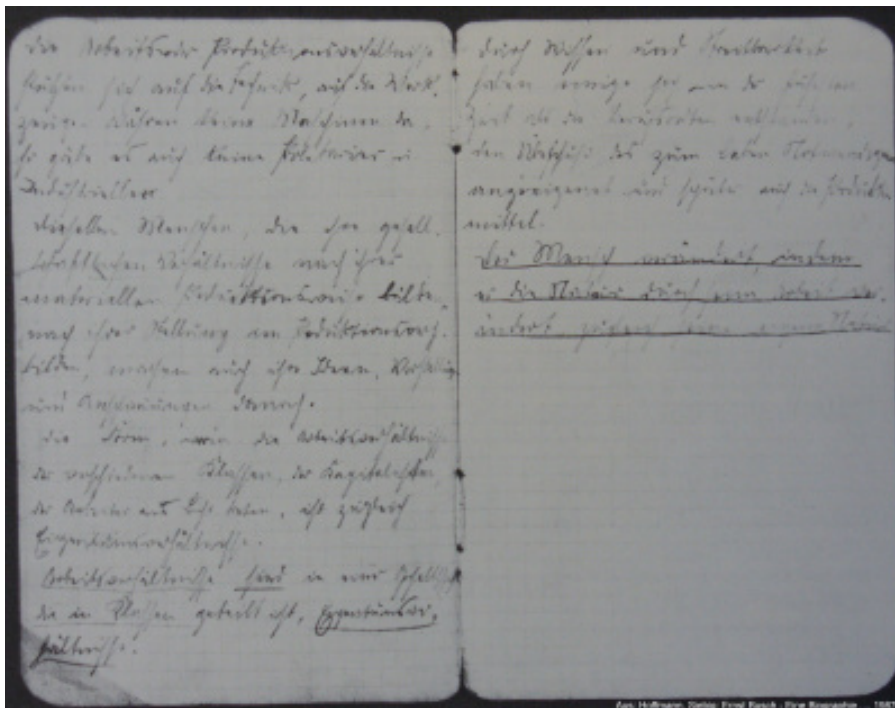 Die Arbeits oder Produktionsverhältnisse
stützen sich auf die Technik, auf die Werk-
zeuge. Wären keine Maschinen da,
so gäbe es auch keine Proletarier u
Industrielle
Dieselben Menschen, die ihre gesell-
schaftlichen Verhältnisse nach ihrer
materiellen Produktionsweise bilden,
nach ihrer Stellung im
bilden, machen auch ihre Ideen,
und Anschauungen danach.
Die Form, worin die Arbeitsverhältnisse
der verschiedenen Klassen, der Kapitalisten,
der Arbeiter ans Licht treten, ist zugleich
Eigentumsverhältnisse.
Arbeitsverhältnisse sind in einer Gesellschaft
die in Klassen geteilt ist, Eigentumsver-
hältnisse.
durch Wissen und
haben einige
Zeit als die
den Überschuß des zum Leben Notwendigen
angeeignet und später auch die Produktions
mittel.
Der Mensch verändert, indem
er die Natur durch seine Arbeit ver-
ändert, zugleich seine eigene Natur
Aus: Hoffmann, Ernst Busch - Eine Biographie